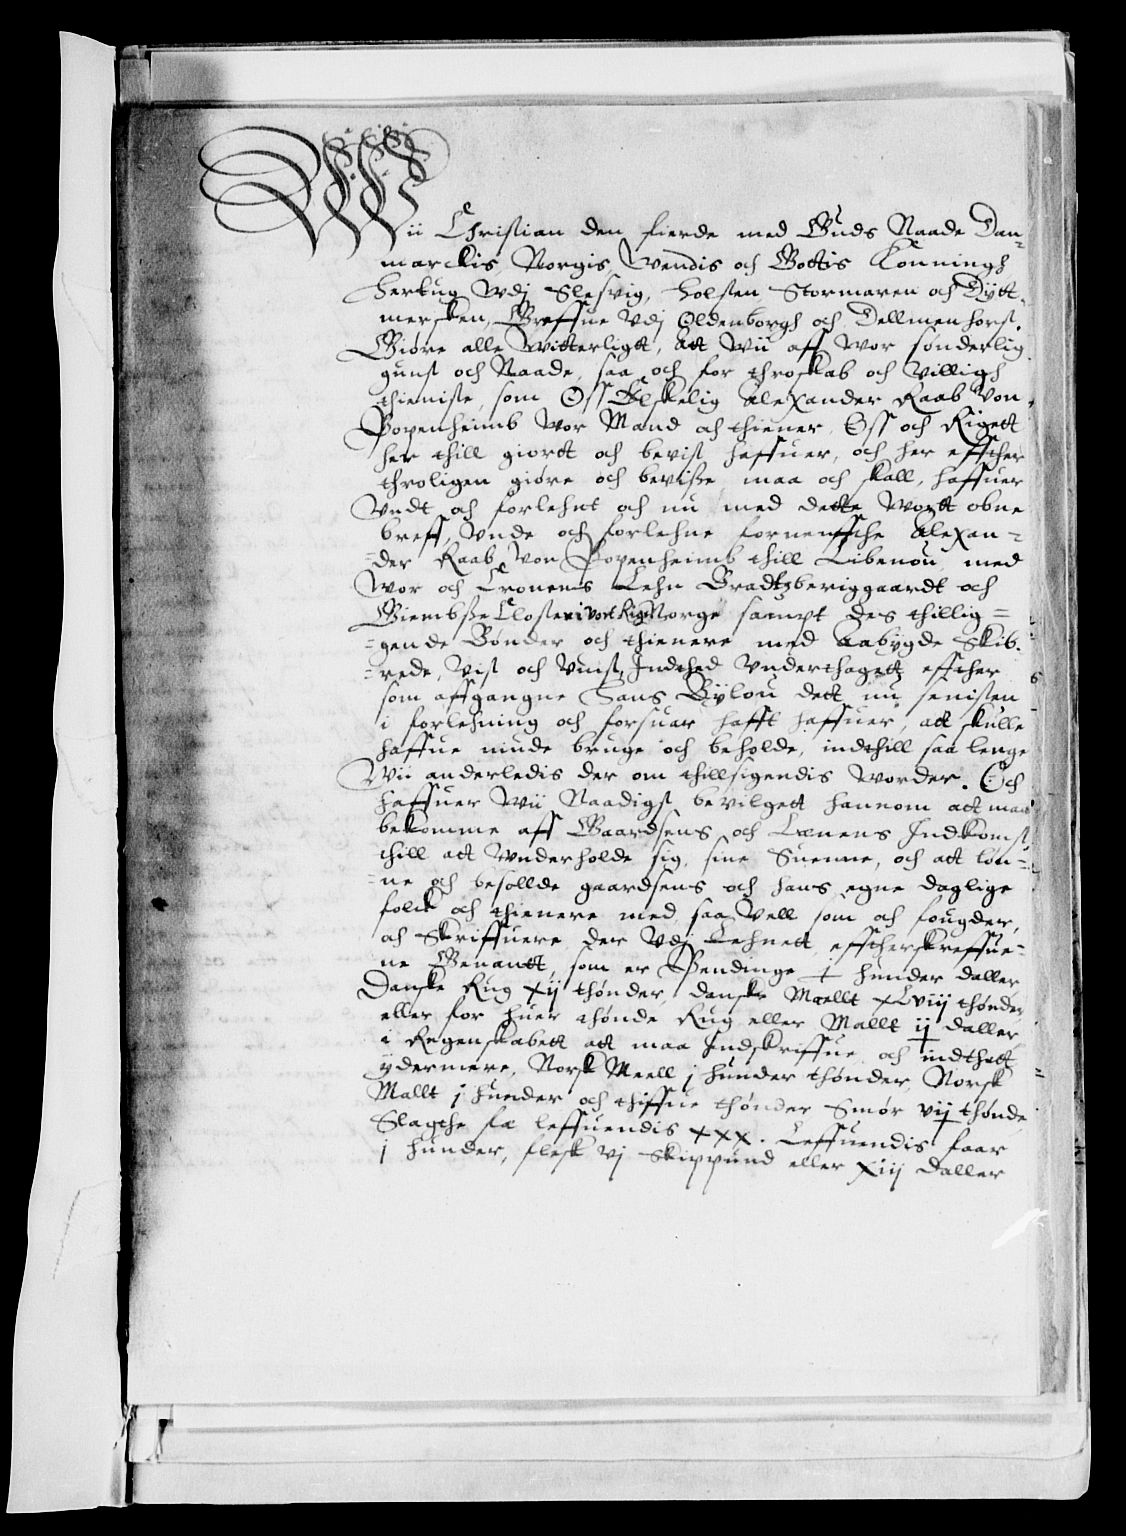 Wii Christian den fierde med Guds Naade Dan¬
marckis Norgis Wendis och Gottis Konningh
Hertug Wdj Slesvig, Holsten Stormaren och Dytt¬
mersken, Greffue Vdj Oldenborgh och Dellmenhorst.
Giøre alle Witterligtt, Att Wii aff Wor sønderlig
gunst och Naade, saa och for throskab och villigh
thieniste, som Oss Elskelig Alexander Raab Von
Popenheimb Wor Mand och thiener, Oss och Rigett
her thill giortt och bevist haffuer, och her effther
throligen giøre och bevisse maa och skall, haffuer
Vndt och forlehnt och nu med dette Wortt obne
breff, Vnde och forlehne fornenffche Alexan=
=der Raab Von Popenheimb thill Libenou, med
Wor och Cronens Lehn Bradtzberiggaardt och
Giembsse Closter i Vort Rige Norge sampt des thillig=
=gende Bønder och thienere med Aabygde Skib¬
=rede, Vist och Vuist, Indthed Vnderthagett, effther
som affgangne Hans Bylou dett nu senisten
i forlehning och forsuar hafft haffuer, att skulle
haffue niude bruge och beholde, indthill saa lenge
Wii anderledis der om thillsigendis Worder. Och
haffuer Wii Naadigst bevilgett hannom att maa
bekomme aff Gaardsens och Lænens Indkomst
thill att Wnderholde sig, sine Suenne, och att løn=
=ne och besollde gaardsens och hans egne daglige
folck och thienere med, saa Vell som och fougder,
och Skriffuere der Vdj Lehnett, effcherskreffue=
ne Benantt, som er Pendinge + hunder daller
Danske Rug xij thønder, danske Mællt xLviij thønder
eller for huer thønde Rug eller Mallt ij daller
i Regenskabett att maa Indskriffue, och indthett
ydermere, Norsk Meell j hunder thønder, Norsk
Mallt j hunder och thiffue thønder Smør vij thønde
Slagthe fæ leffuendis xxx. Leffuendis faar
j hunder, flesk vj Skippund eller xiij daller